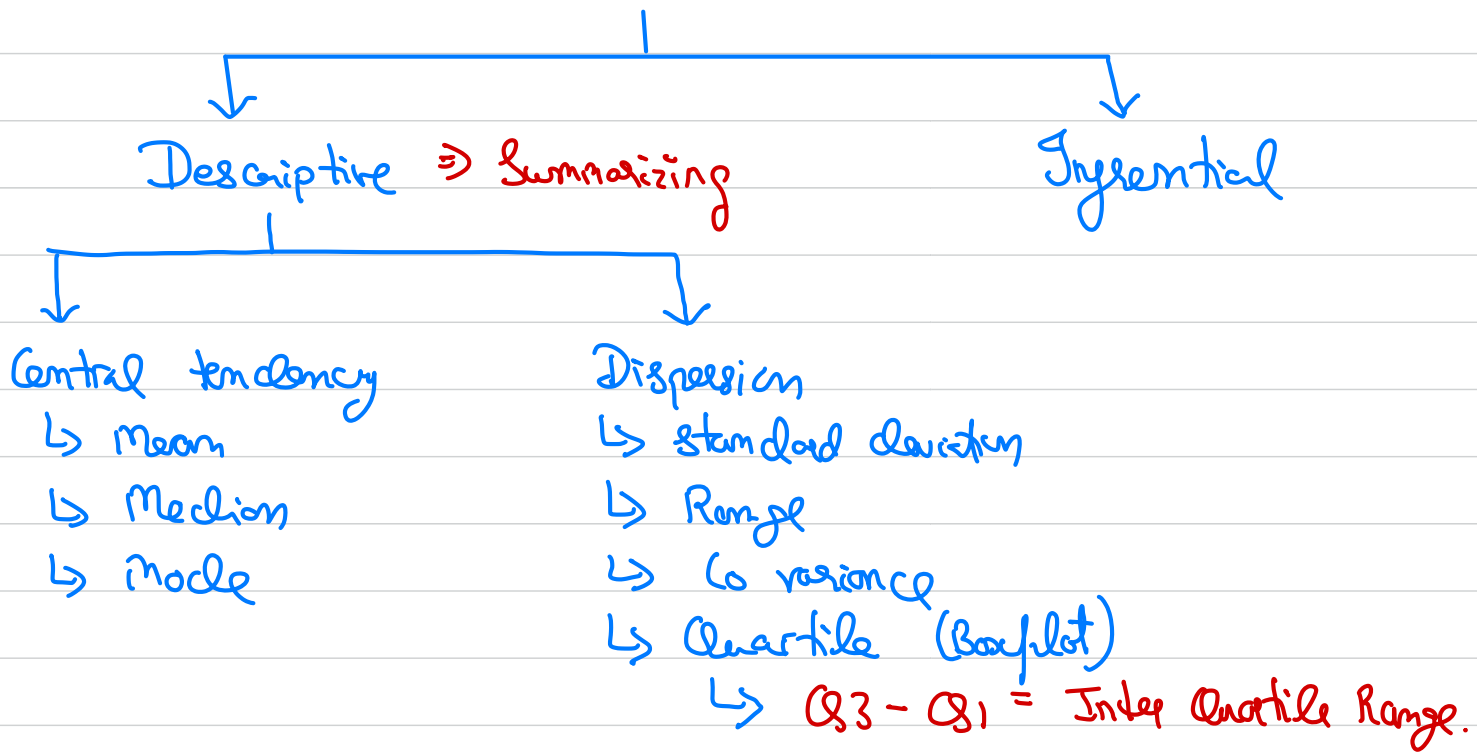 Descriptive ⇒ Summarizing
Inferential
Central tendency
↳ Mean
↳ Median
↳ Mode
Dispersion
↳ Standard deviation
↳ Range
↳ Co variance
↳ Quartile (Boxplot)
↳ Q3 - Q1 = Inter Quartile Range.